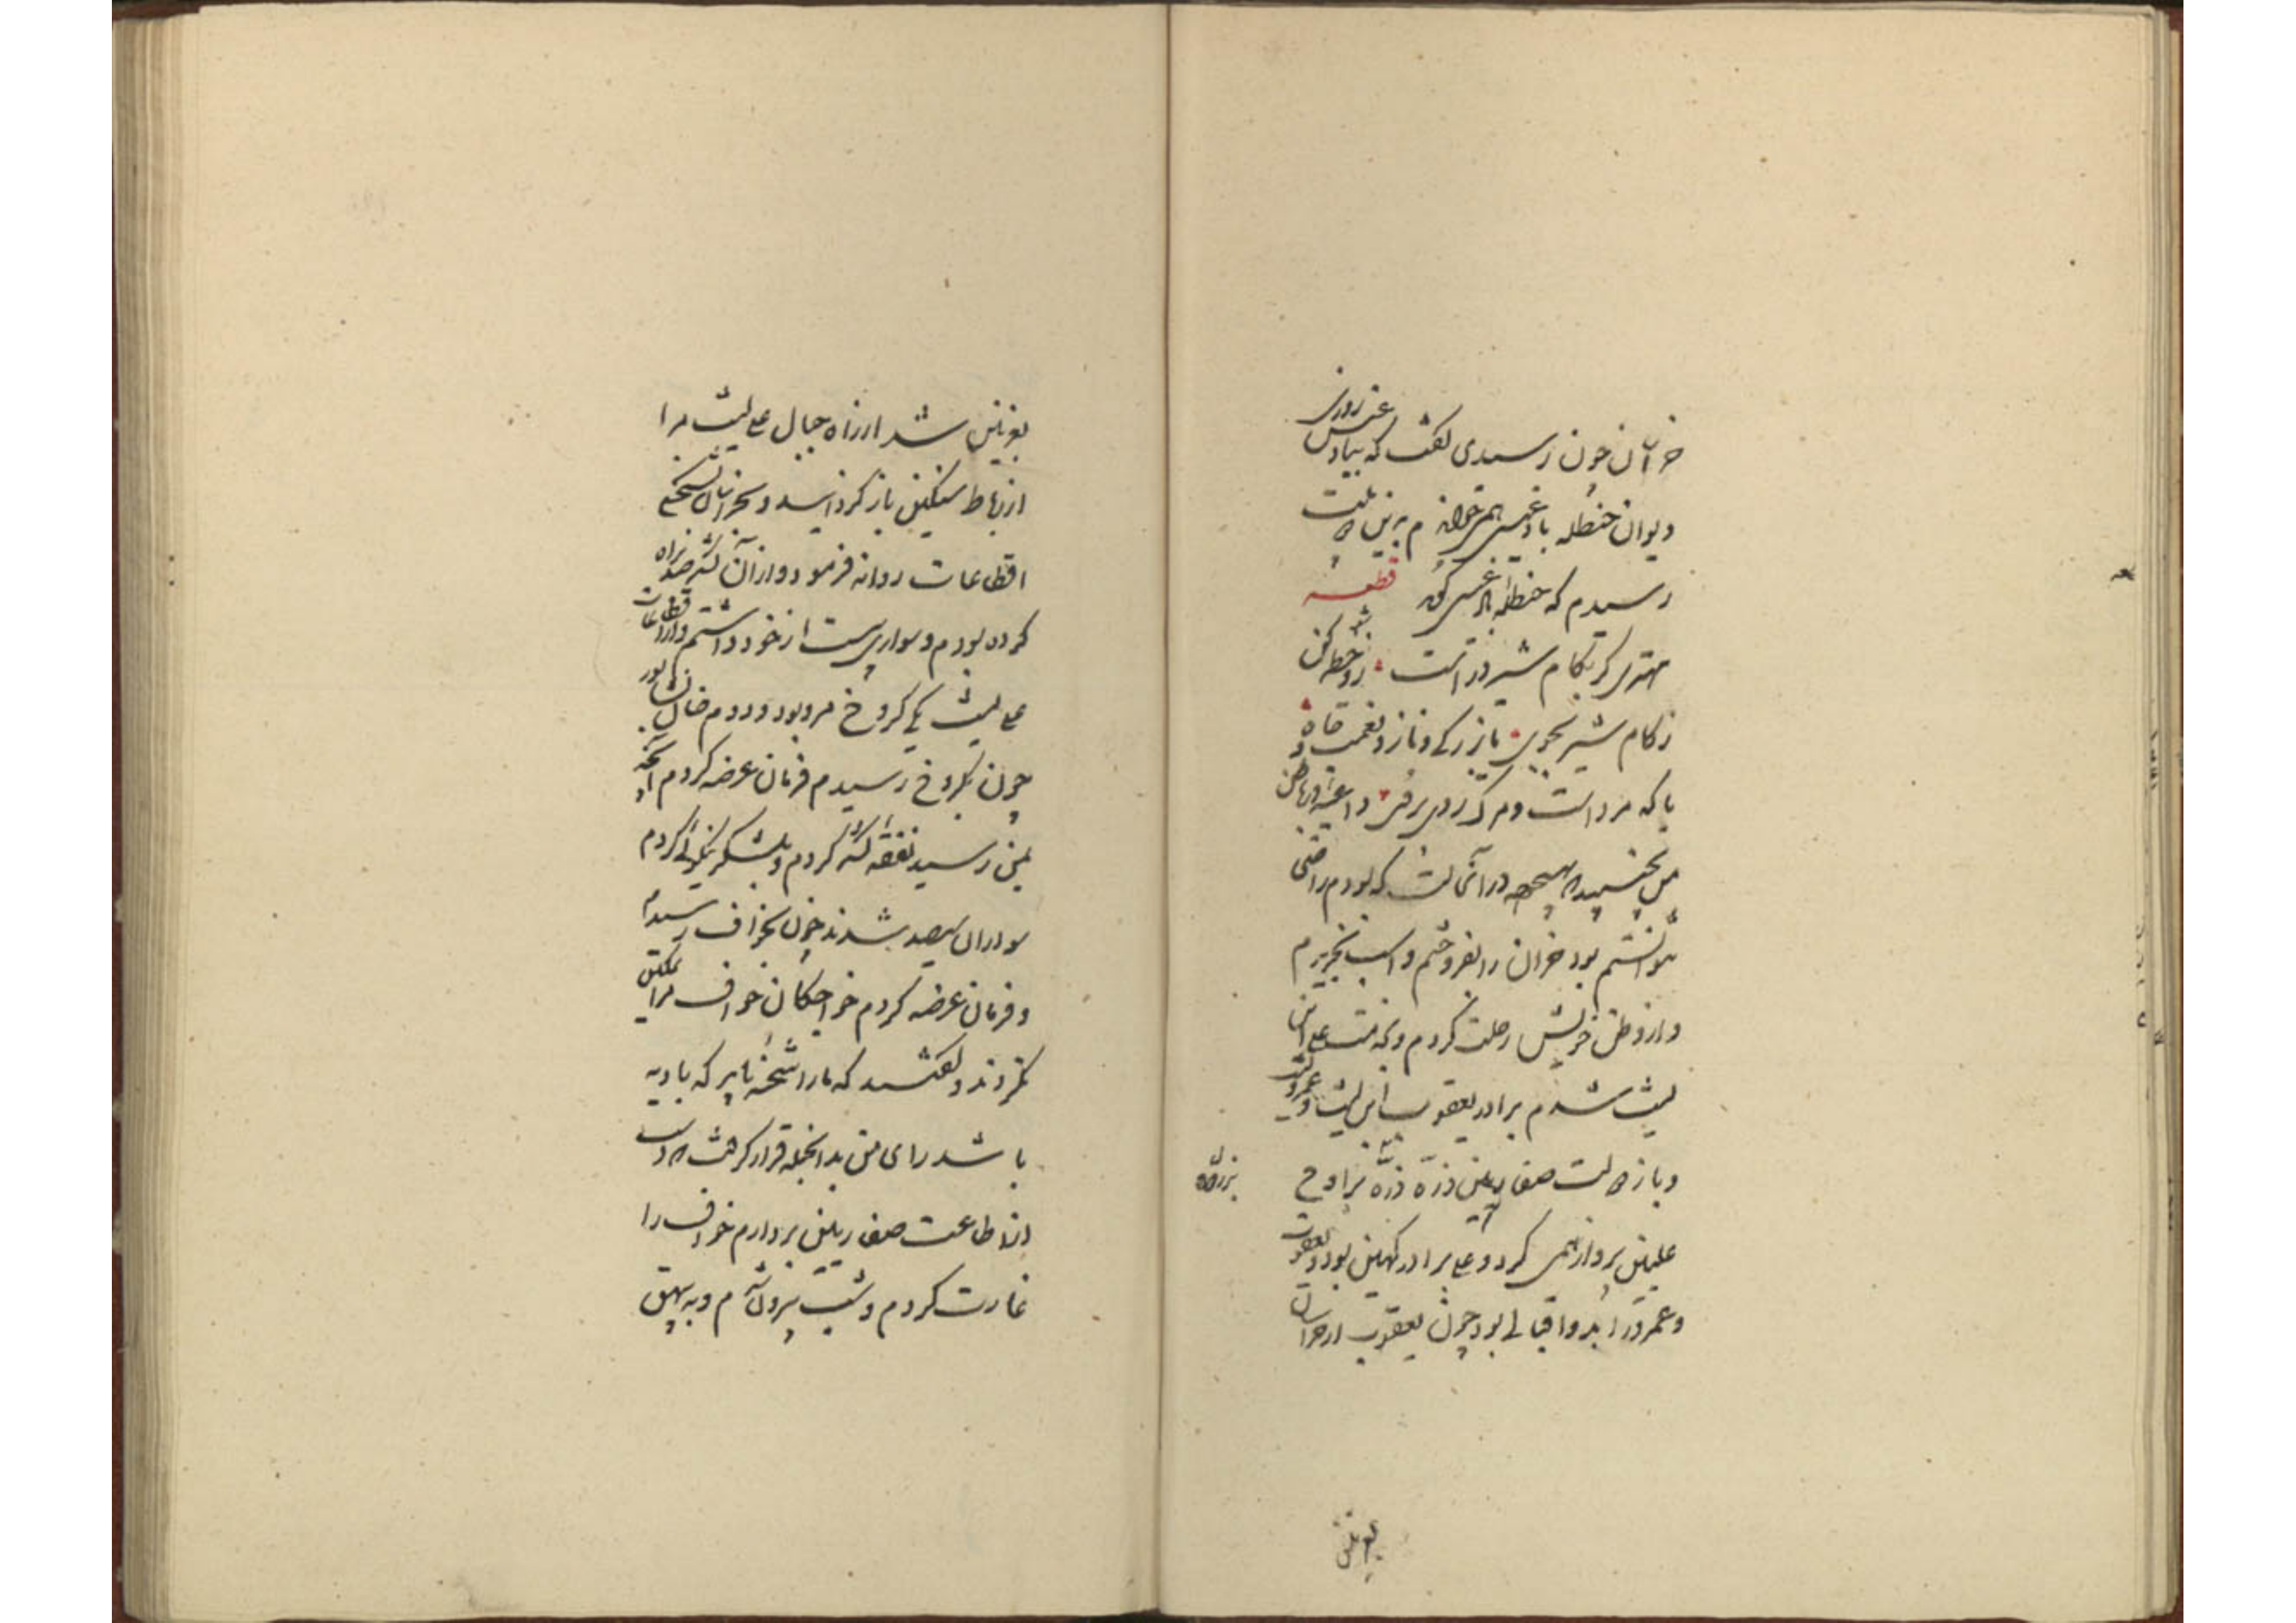 خراسان چون رسیدی گفت که ببادغیس روزی
دیوان حنظله بادغیسی همی خواندم بدین دو بیت
رسیدم که حنظله بادغیسی گوید قطعه
مهتری گر بکام شیر در است شو خطر کن
ز کام شیر بجوی یا بزرگی و ناز و نعمت و جاه
یا که مردانت و مرگ رویاروی داعیه در باطن
من بجنبید که بهیچ وجه در آن حالت که بودم راضی
نتوانستم بود خران را بفروختم و اسب بخریدم
و از وطن خویش رحلت کردم و بخدمت علی ابن
لیث شدم برادر یعقوب ابن لیث و عمرو لیث
و باز دولت صفاریان در ذروه
علیین پرواز همی کرد و علی برادر کهین بود و یعقوب
و عمرو را بدو اقبالی بود چون یعقوب از خراسان
بغزنین
بغزنین شد از راه جبال علی لیث مرا
از رباط سنگین بازگردانید و بخراسان بشحنگی
اقطاعات روانه فرمود و از آن لشکر صد بر راه
کرده بودم و سواری بیست از خود داشتم و از اقطاعات
علی لیث یکی کروخ مرو بود و دوم خاف نشابور
چون بکروخ رسیدم فرمان عرضه کردم آنچه
بمن رسید تفرقه لشکر کردم و بلشکر
سواران سیصد شدند چون بخواف رسیدم
و فرمان عرضه کردم خواجگان خواف مرا تمکین
نکردند و گفتند که ما را شحنه باید که با ده
باشد رای من بدانجمله قرار گرفت که دست
از طاعت صفاریان بردارم خواف را
غارت کردم و بشت بیرون شدم و به بیهق